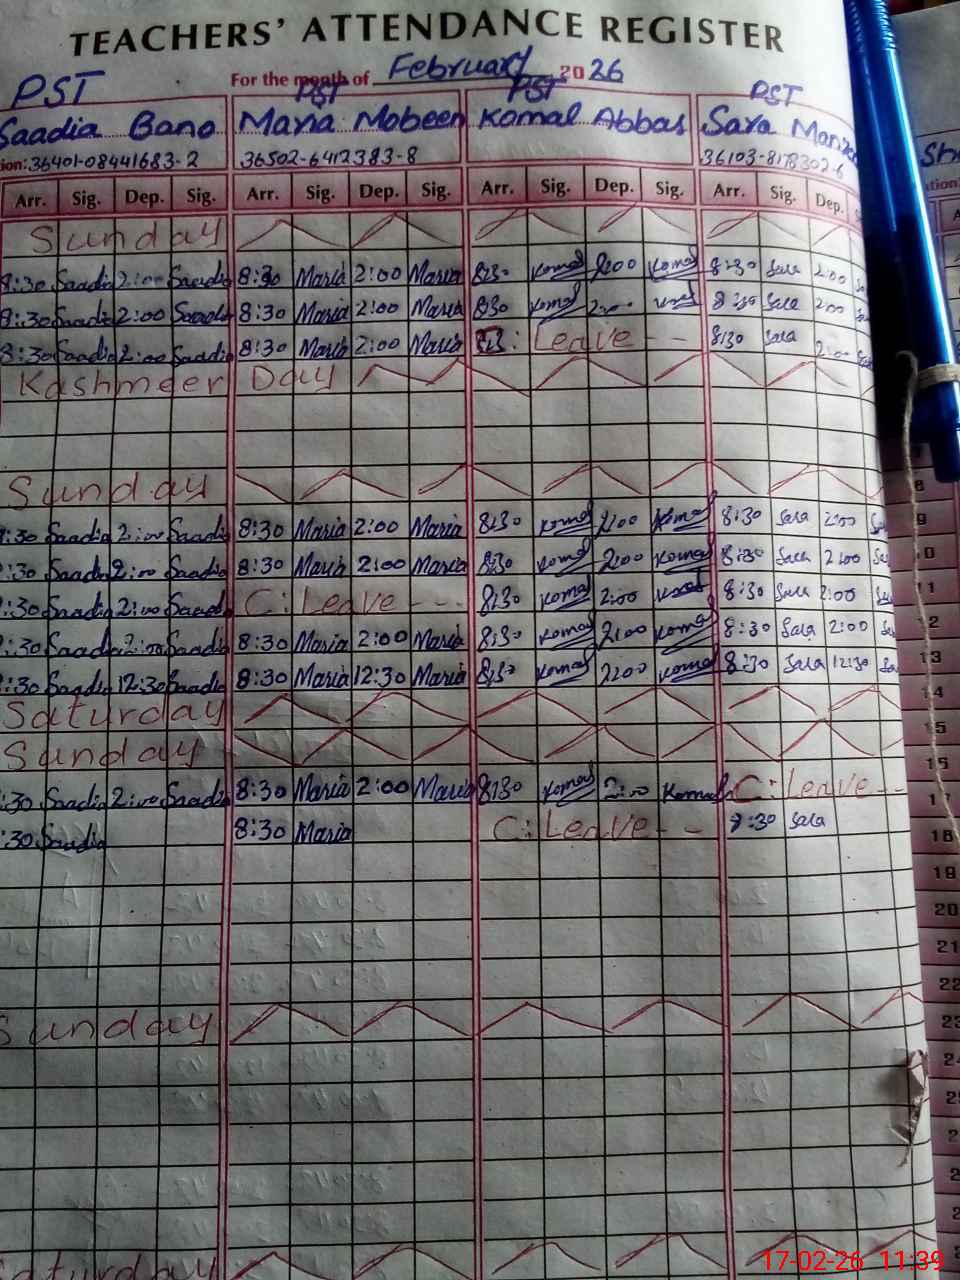 TEACHERS' ATTENDANCE REGISTER
For the month of February 2026
PST PST PST PST
Saadia Bano Maria Mobeen Komal Abbas Sara
ion:36401-08441683-2 36502-6412383-8 36103-8178302-6
Arr. Sig. Dep. Sig. Arr. Sig. Dep. Sig. Arr. Sig. Dep. Sig. Arr. Sig. Dep.
Sunday
8:30 Saadia 2:00 Saadia 8:30 Maria 2:00 Maria 8:30 Komal 2:00 Komal 8:30 Sara 2:00
8:30 Saadia 2:00 Saadia 8:30 Maria 2:00 Maria 8:30 Komal 2:00 Komal 8:30 Sara 2:00
8:30 Saadia 2:00 Saadia 8:30 Maria 2:00 Maria Leave - - 8:30 Sara 2:00
Kashmeer Day
Sunday 8
:30 Saadia 2:00 Saadia 8:30 Maria 2:00 Maria 8:30 Komal 2:00 Komal 8:30 Sara 2:00 9
:30 Saadia 2:00 Saadia 8:30 Maria 2:00 Maria 8:30 Komal 2:00 Komal 8:30 Sara 2:00 0
:30 Saadia 2:00 Saadia C:Leave - - - 8:30 Komal 2:00 Komal 8:30 Sara 2:00 11
:30 Saadia 2:00 Saadia 8:30 Maria 2:00 Maria 8:30 Komal 2:00 Komal 8:30 Sara 2:00 12
:30 Saadia 12:30 Saadia 8:30 Maria 12:30 Maria 8:30 Komal 2:00 Komal 8:30 Sara 12:30 13
Saturday 14
Sunday 15
:30 Saadia 2:00 Saadia 8:30 Maria 2:00 Maria 8:30 Komal 2:00 Komal C:Leave - -
:30 Saadia 8:30 Maria C:Leave - - 8:30 Sara
18
19
20
21
22
Sunday 23
Saturday
17-02-26 11:39